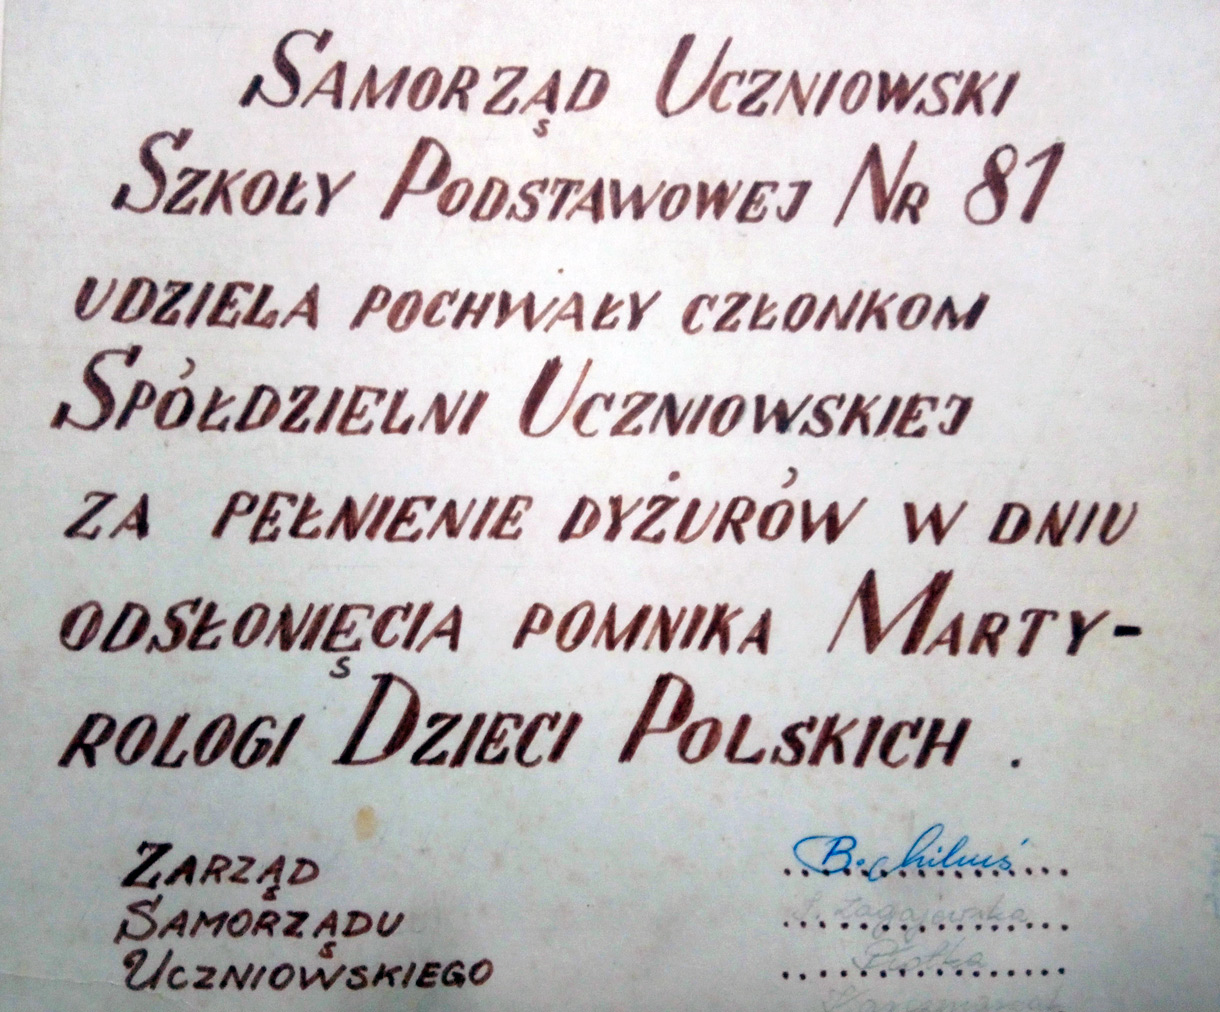 Samorząd Uczniowski
Szkoły Podstawowej Nr 81
udziela pochwały członkom
Spółdzielni Uczniowskiej
za pełnienie dyżurów w dniu
odsłonięcia pomnika Marty-
rologi Dzieci Polskich .
Zarząd
Samorządu
Uczniowskiego
B.